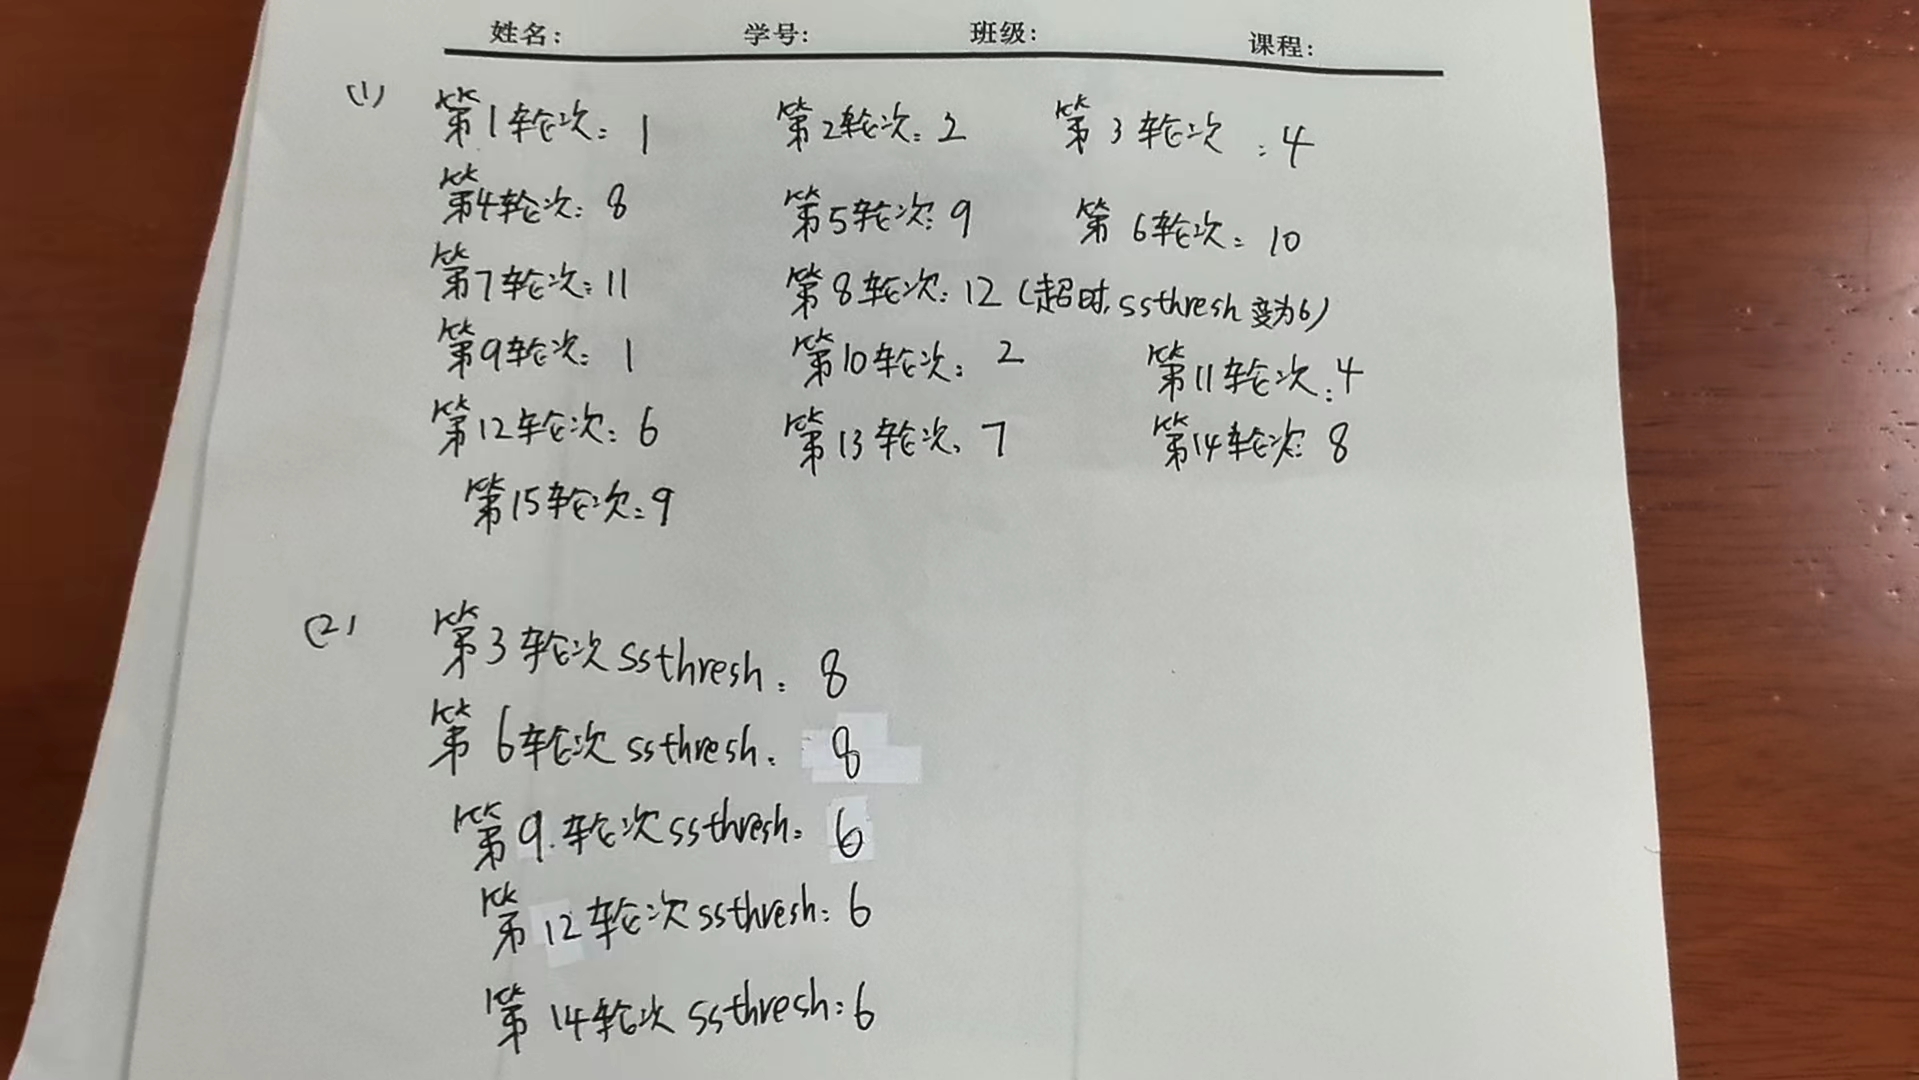 姓名： 学号： 班级： 课程：
(1) 第1轮次：1 第2轮次：2 第3轮次：4
第4轮次：8 第5轮次：9 第6轮次：10
第7轮次：11 第8轮次：12（超时，ssthresh变为6）
第9轮次：1 第10轮次：2 第11轮次：4
第12轮次：6 第13轮次：7 第14轮次：8
第15轮次：9
(2) 第3轮次ssthresh：8
第6轮次ssthresh：8
第9.轮次ssthresh：6
第12轮次ssthresh：6
第14轮次ssthresh：6